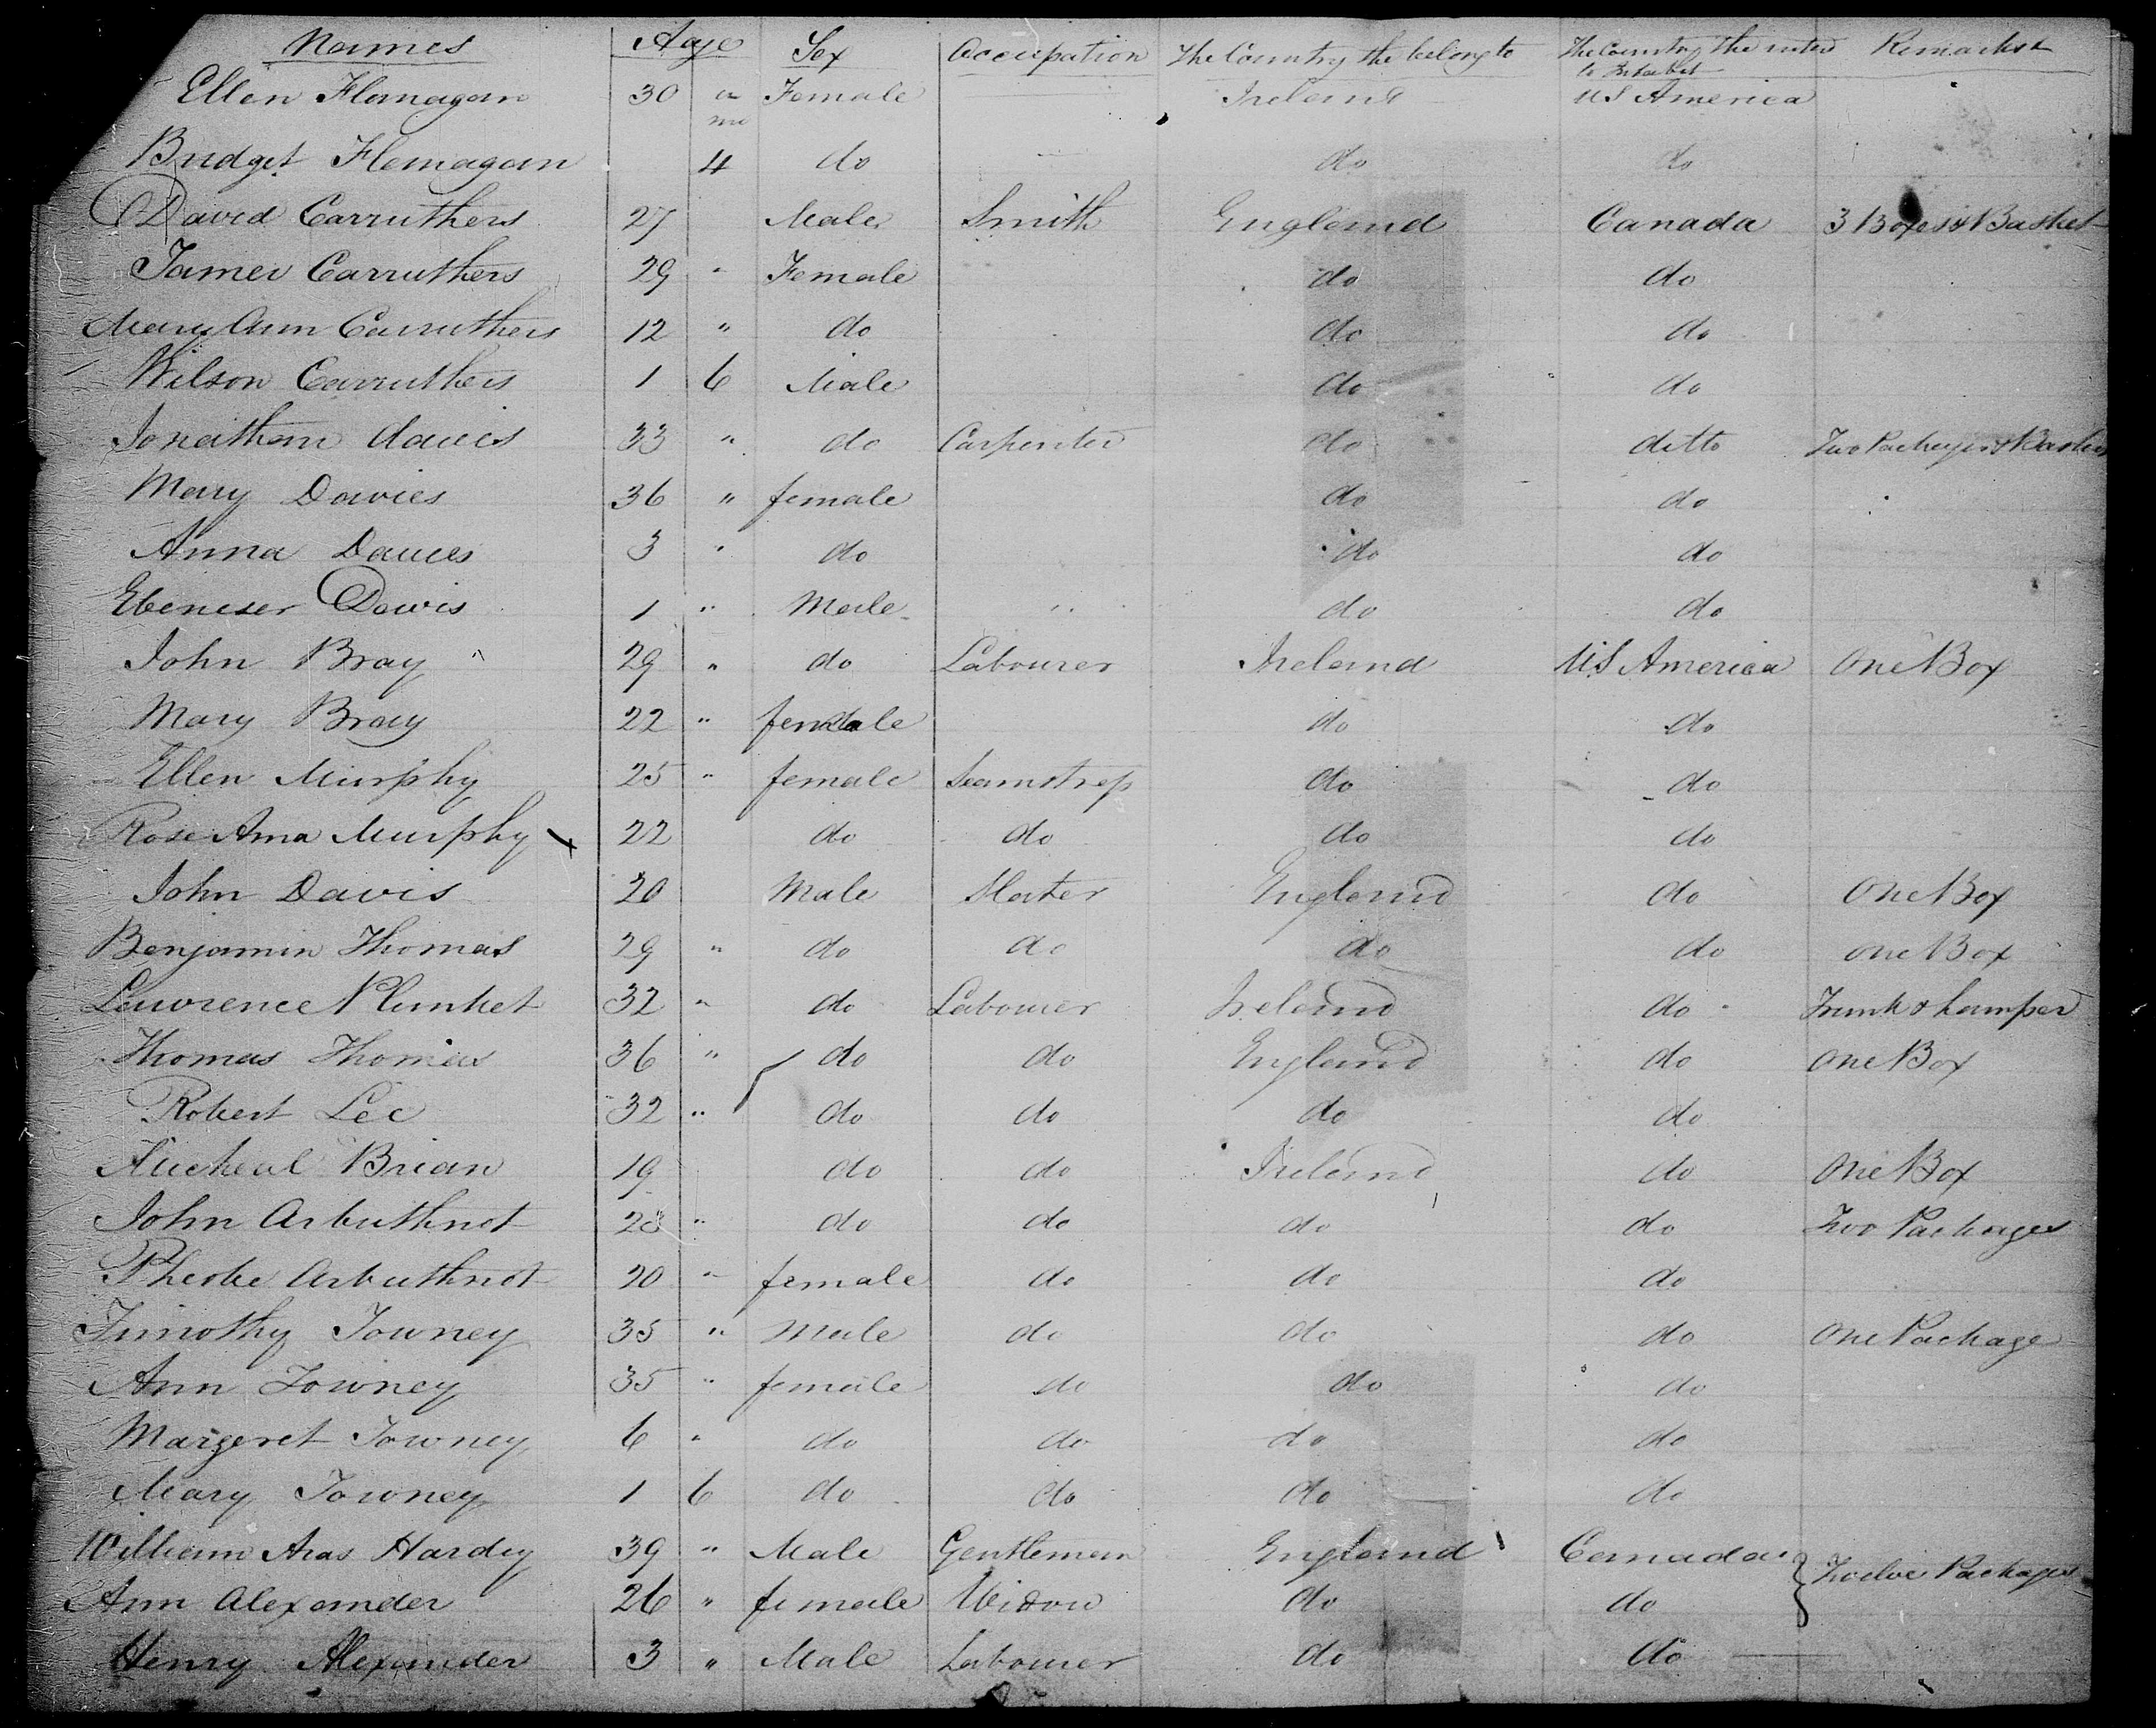 Names Age Sex Occupation The Country the belong to The Country the inten to Inhabit Remarks
Ellen Flanagan 30 Female Ireland US America
mo
Bridget Flanagan 4 do do do
David Carruthers 27 Male Smith England Canada 3 Boxes & Basket
Carruthers 29 " Female do do
Mary Ann Carruthers 12 " do do do
Wilson Carruthers 1 6 Male do do
Jonathan Davies 33 " do Carpenter do ditto Two Packages &
Mary Davies 36 " female do do
Anna Davies 3 " do do do
Ebeneser Davis 1 " Male " do do
John Bray " 29 " do Labourer Ireland US America One Box
Mary Bray 22 " female do do
Ellen Murphy 25 " female Seamstress do do
Rose Anna Murphy x 22 do do do do
John Davis 20 Male Slater England do One Box
Benjamin Thomas 29 " do do do do One Box
Lawrence Plunket 32 " do Labourer Ireland do Trunk & hamper
Thomas Thomas 36 " do do England do One Box
Robert Lee 32 " do do do do
Micheal Brian 19 do do Ireland do One Box
John Arbuthnot 28 " do do do do Two Packages
Phoebe Arbuthnot 20 " female do do do
Timothy Towney 35 " Male do do do One Package
Ann Towney 35 " female do do do
Margeret Towney 6 " do do do do
Mary Towney 1 6 do do do do
William Hardy 39 " Male Gentleman England Canada } Twelve Packages
Ann Alexander 26 " female Widow do do
Henry Alexander 3 " Male Labourer do do